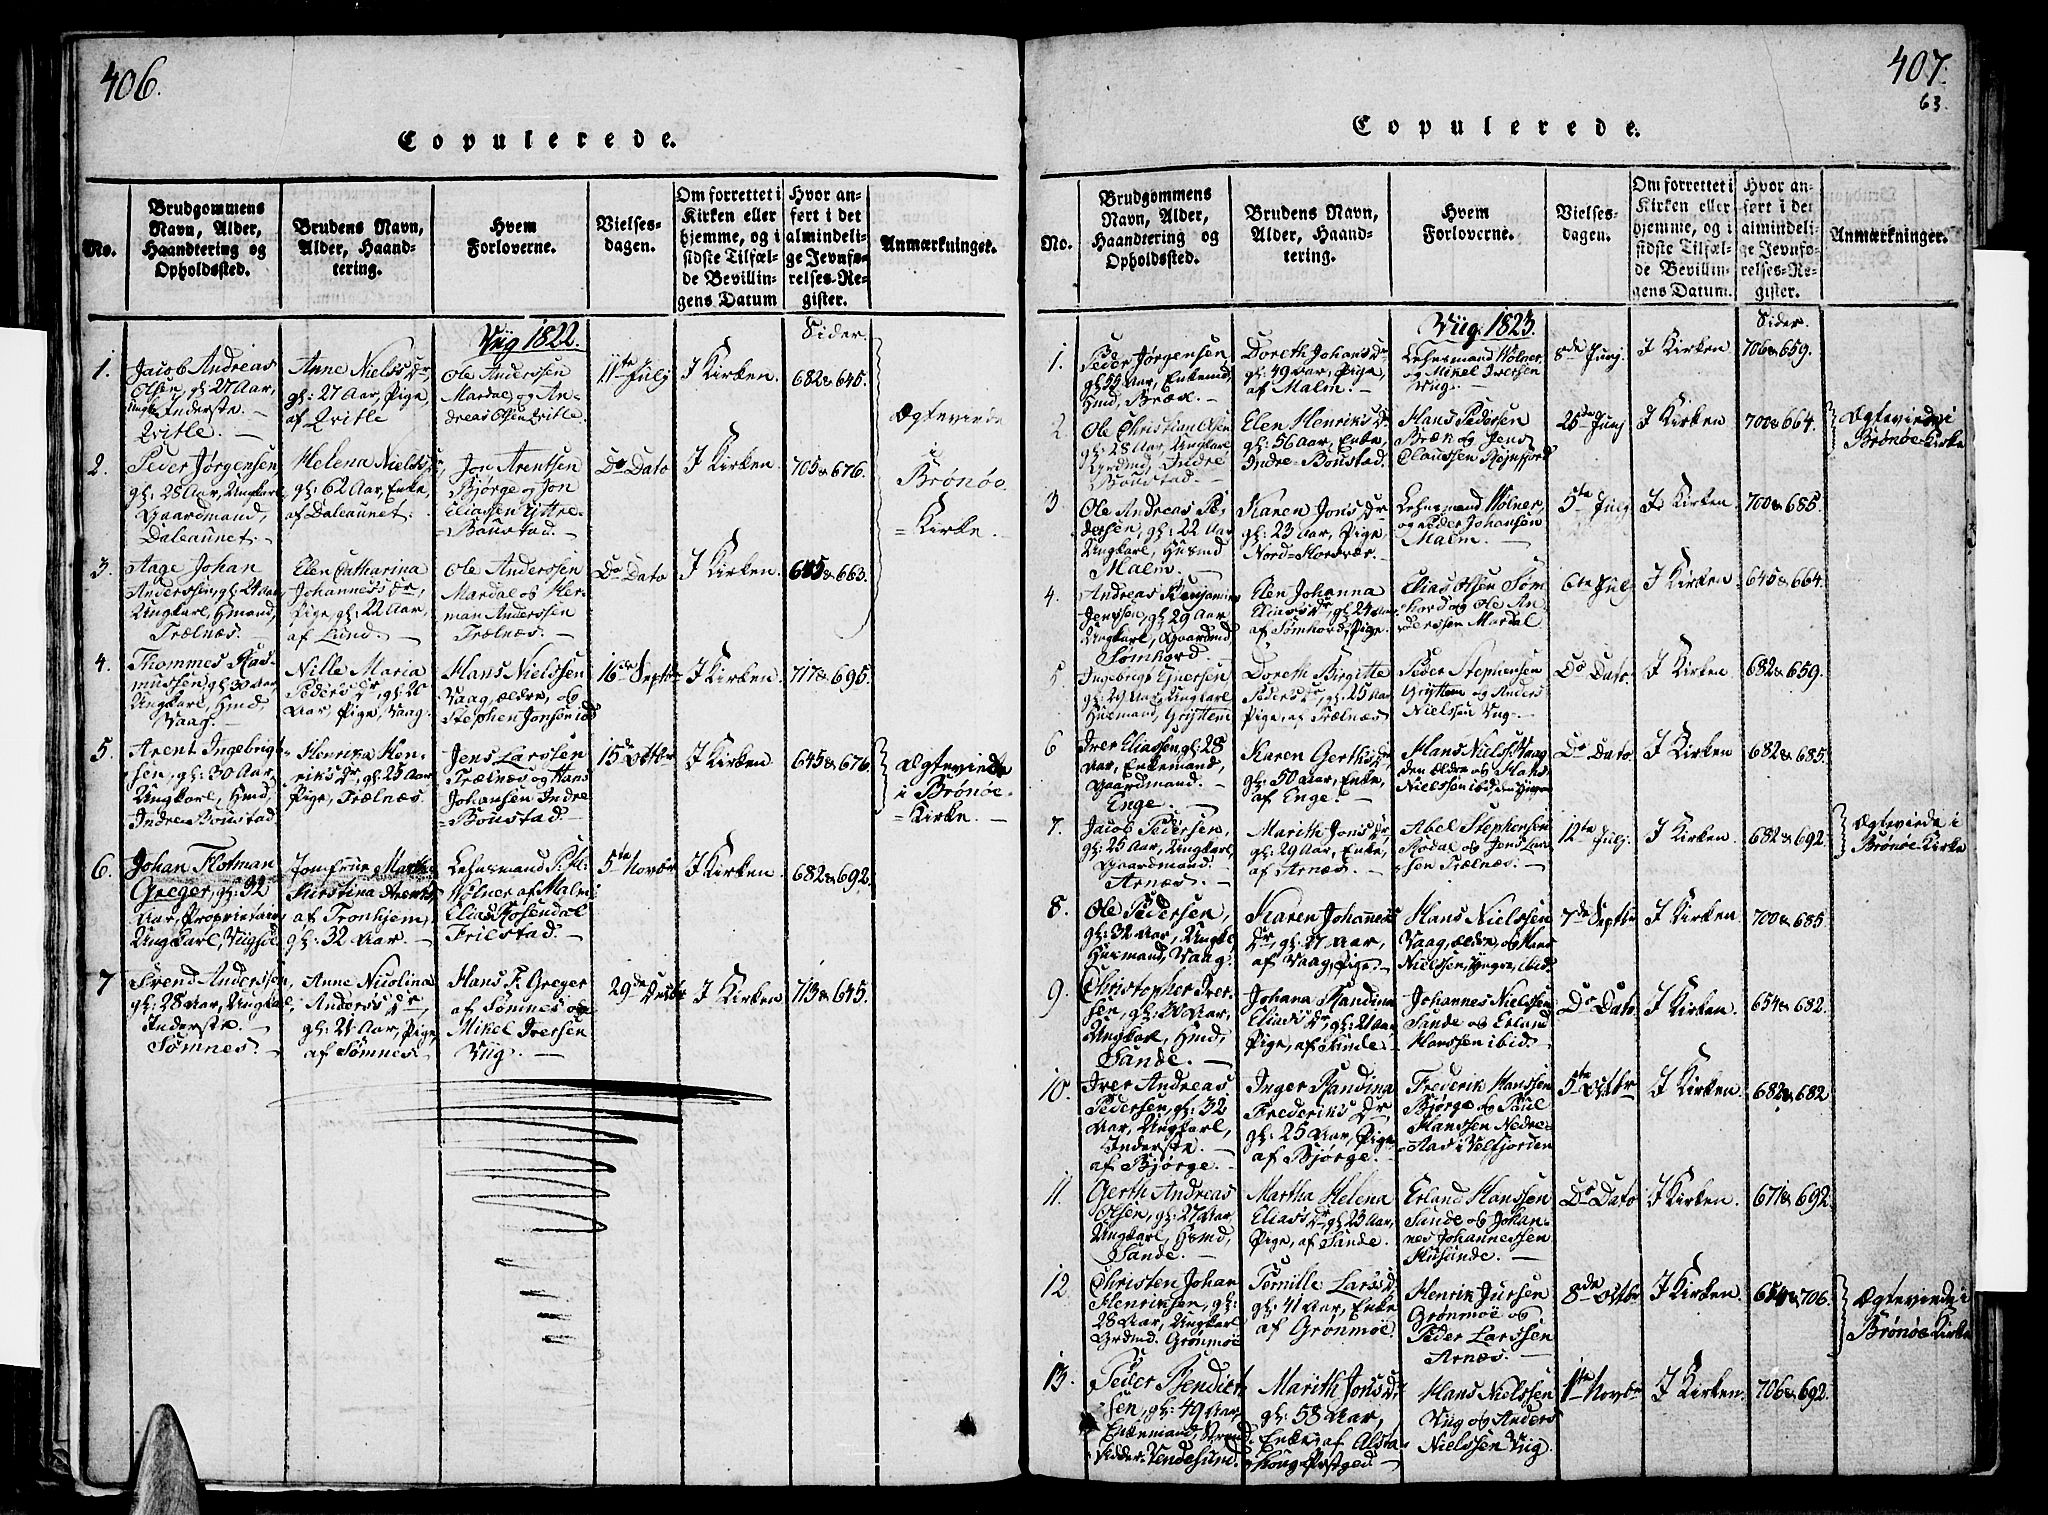 406.
Copulerede.
No.
Brudgommens
Navn, Alder,
Haandtering og
Opholdssted.
Brudens Navn,
Alder, Haand-
tering.
Hvem
Forloverne.
Vielses-
dagen.
Om forrettet i
Kirken eller
hjemme, og i
sidste Tilfæl-
de Bevillin-
gens Datum
Hvor an-
ført i det
almindeli-
ge Jevnfø-
relses-Re-
gister.
Anmærkninger.
Viig 1822.
Sider.
1.
Jacob Andreas
Olsen, gl: 27 Aar,
Inderste
Qvitle. —
Anne Niels Dr,
gl: 27 Aar, Pige,
af Qvitle
Ole Anderssen
Mardal og An-
dreas Olsen Qvitle.
11te Julj
I Kirken.
682 & 645.
Ægteviede
i
Brønøe
=Kirke. —
2.
Peder Jørgensen,
gl: 28 Aar, Ungkarl,
Gaardmand,
Daleaunet. —
Helena Niels Dr,
gl: 62 Aar, Enke,
af Daleaunet. —
Jon Arentsen
Bjørge og Jon
Eliassen Yttre-
=Boustad. —
Do Dato
I Kirken
705 & 676.
3.
Aage Johan
Anderssen, gl: 24 Aar
Ungkarl, Hmand,
Trælnæs. —
Elen Catharina
Johannes Dr,
Pige, gl: 22 Aar,
af Lund. —
Ole Anderssen
Mardal og Her-
man Anderssen
Trælnæs. —
Do Dato
I Kirken
685 & 663.
4.
Thommes Ras-
mussen, gl: 30 Aar,
Ungkarl, Hmd,
Vaag. —
Nille Maria
Peders Dr, gl: 26
Aar, Pige, Vaag.
Hans Nielssen
Vaag, ældre, og
Stephen Jonsen ibd
16de Septbr
I Kirken
717 & 695.
5.
Arent Ingebrigt-
sen, gl: 30 Aar,
Ungkarl, Hmd,
Indre Boustad
Henrika Hen-
riks Dr, gl: 25 Aar
Pige, Trælnæs.
Jens Larssen
Trælnæs og Hans
Johansen Indre
=Boustad. —
15de Octbr
I Kirken
645 & 676
Ægteviede
i Brønøe-
=Kirke. —
6.
Johan Flotman
Greger, gl: 32
Aar, Proprietair,
Ungkarl, Viigsøe
Jomfrue Martha
Kirstina Arents
af Tronhjem,
gl: 32 Aar. —
Lehnsmand P. M.
Wolner af Malm
Elias Rosendal
Frilstad. —
5te Novbr
I Kirken
682 & 692.
7
Svend Anderssen,
gl: 28 Aar, Ungkarl
Inderste. —
Sømnes. —
Anne Nicolina
Anders Dr,
gl: 21 Aar, Pige,
af Sømnes. —
Hans F. Greger
af Sømnes og
Mikel Iversen
Viig. —
29de Decbr
I Kirken
713 & 645.
407.
63.
Copulerede.
No.
Brudgommens
Navn, Alder,
Haandtering og
Opholdssted.
Brudens Navn,
Alder, Haand-
tering.
Hvem
Forloverne.
Vielses-
dagen.
Om forrettet i
Kirken eller
hjemme, og i
sidste Tilfæl-
de Bevillin-
gens Datum.
Hvor an-
ført i det
almindeli-
ge Jevnfø-
relses-Re-
gister.
Anmærkninger.
Viig 1823.
Sider.
1.
Peder Jørgensen
gl: 55 Aar, Enkemd,
Hmd, Bræk. —
Doreth Johans Dr
gl: 49 Aar, Pige,
af Malm. —
Lehnsmand Wolner
og Mikel Iversen
Viig. —
8de Junj.
I Kirken
706 & 659.
2.
Ole Christian Olsen
gl: 28 Aar, Ungkarl,
Grdmd, Indre
Boustad. —
Elen Henriks Dr
gl: 56 Aar, Enke,
Indre-Boustad.
Hans Pedersen
Bræk og Jens
Claussen
25de Junj
I Kirken
700 & 664.
Ægteviede i
Brønøe Kirke
3
Ole Andreas Pe-
dersen, gl: 22 Aar
Ungkarl, Husmd
Malm. —
Karen Jons Dr
gl: 23 Aar, Pige,
Nord-Horsvær.
Lehnsmand Wolner,
og Peder Johansen
Malm. —
5te Julj
I Kirken
700 & 685.
4.
Andreas Benjamin
Jenssen, gl: 29 Aar
Ungkarl, Gaardmd
Sømhord. —
Elen Johanna
Elias Dr, gl: 24 Aar
af Sømhord, Pige.
Elias Olsen Søm-
hord og Ole An-
derssen Mardal
6te Julj
I Kirken
645 & 664.
5
Ingebrigt Ejnersen
gl: 29 Aar, Ungkarl
Husmand, Gryttem
Doreth Birgitte
Peders Dr, gl: 25 Aar
Pige, af Trælnæs
Peder Stephensen
Gryttem og Anders
Nielssen Viig. —
Do Dato.
I Kirken
682 & 659.
6
Iver Eliassen, gl: 28
Aar, Enkemand,
Gaardmand.
Enge. —
Karen Gerths Dr
gl: 50 Aar, Enke,
af Enge. —
Hans Nielss: Vaag
den ældre og Hans
Nielssen ibd den Yngre
Do Dato.
I Kirken
682 & 685.
7.
Jacob Pedersen,
gl: 25 Aar, Ungkarl
Gaardmand.
Arnæs. —
Marith Jons Dr,
gl: 29 Aar, Enke,
af Arnæs. —
Abel Stephensen
Modal og Jens Lar-
sen Trælnæs. —
12te Julj.
I Kirken
682 & 692.
Ægteviede i
Brønøe Kirke
8.
Ole Pedersen,
gl: 32 Aar, Ungkl,
Husmand, Vaag:
Karen Johannes
Dr, gl: 27 Aar,
af Vaag, Pige. —
Hans Nielssen
Vaag, ældre, og Hans
Nielssen, Yngre, ibid.
7de Septbr
I Kirken
700 & 685.
9.
Christopher Iver-
sen, gl: 20 Aar,
Ungkarl, Hmd,
Sande. —
Johana Randina
Elias Dr, gl: 21 Aar
Pige, af Skinde. —
Johannes Nielssen
Sande og Erland
Hanssen ibid. —
Do Dato
I Kirken.
654 & 682.
10.
Iver Andreas
Pedersen, gl: 32
Aar, Ungkarl,
Inderste. —
af Bjørge. —
Inger Randina
Frederiks Dr,
gl: 25 Aar, Pige,
af Bjørge. —
Frederik Hanssen
Bjørge og Paul
Hanssen Nedre-
=Aas i Velfjorden
5te Octbr
I Kirken.
682 & 682
11.
Gerth Andreas
Olsen, gl: 27 Aar,
Ungkarl, Hsmd,
Sande. —
Martha Helena
Elias Dr gl: 23 Aar,
Pige, af Sande.
Erland Hanssen
Sande og Johan-
nes Johannessen
Husinde. —
Do Dato
I Kirken.
671 & 692.
12
Christen Johan
Henriksen, gl:
28 Aar, Ungkarl
Grdmd. Grønmøe
Pernille Lars Dr
gl: 41 Aar, Enke
af Grønmøe.
Henrik Jursen
Grønmøe og
Peder Larssen
Arnæs. —
8de Octbr
I Kirken.
654 & 706.
Ægteviede i
Brønøe Kirke
13.
Peder Bendict-
sen, gl: 49 Aar,
Enkemand, Strand-
sidder. Vendesund.
Marith Jons Dr
gl: 58 Aar,
Enke, af Alsta-
=houg Prstged —
Hans Nielssen
Viig og Anders
Nielssen Viig.
1te Novbr
I Kirken.
706 & 692.